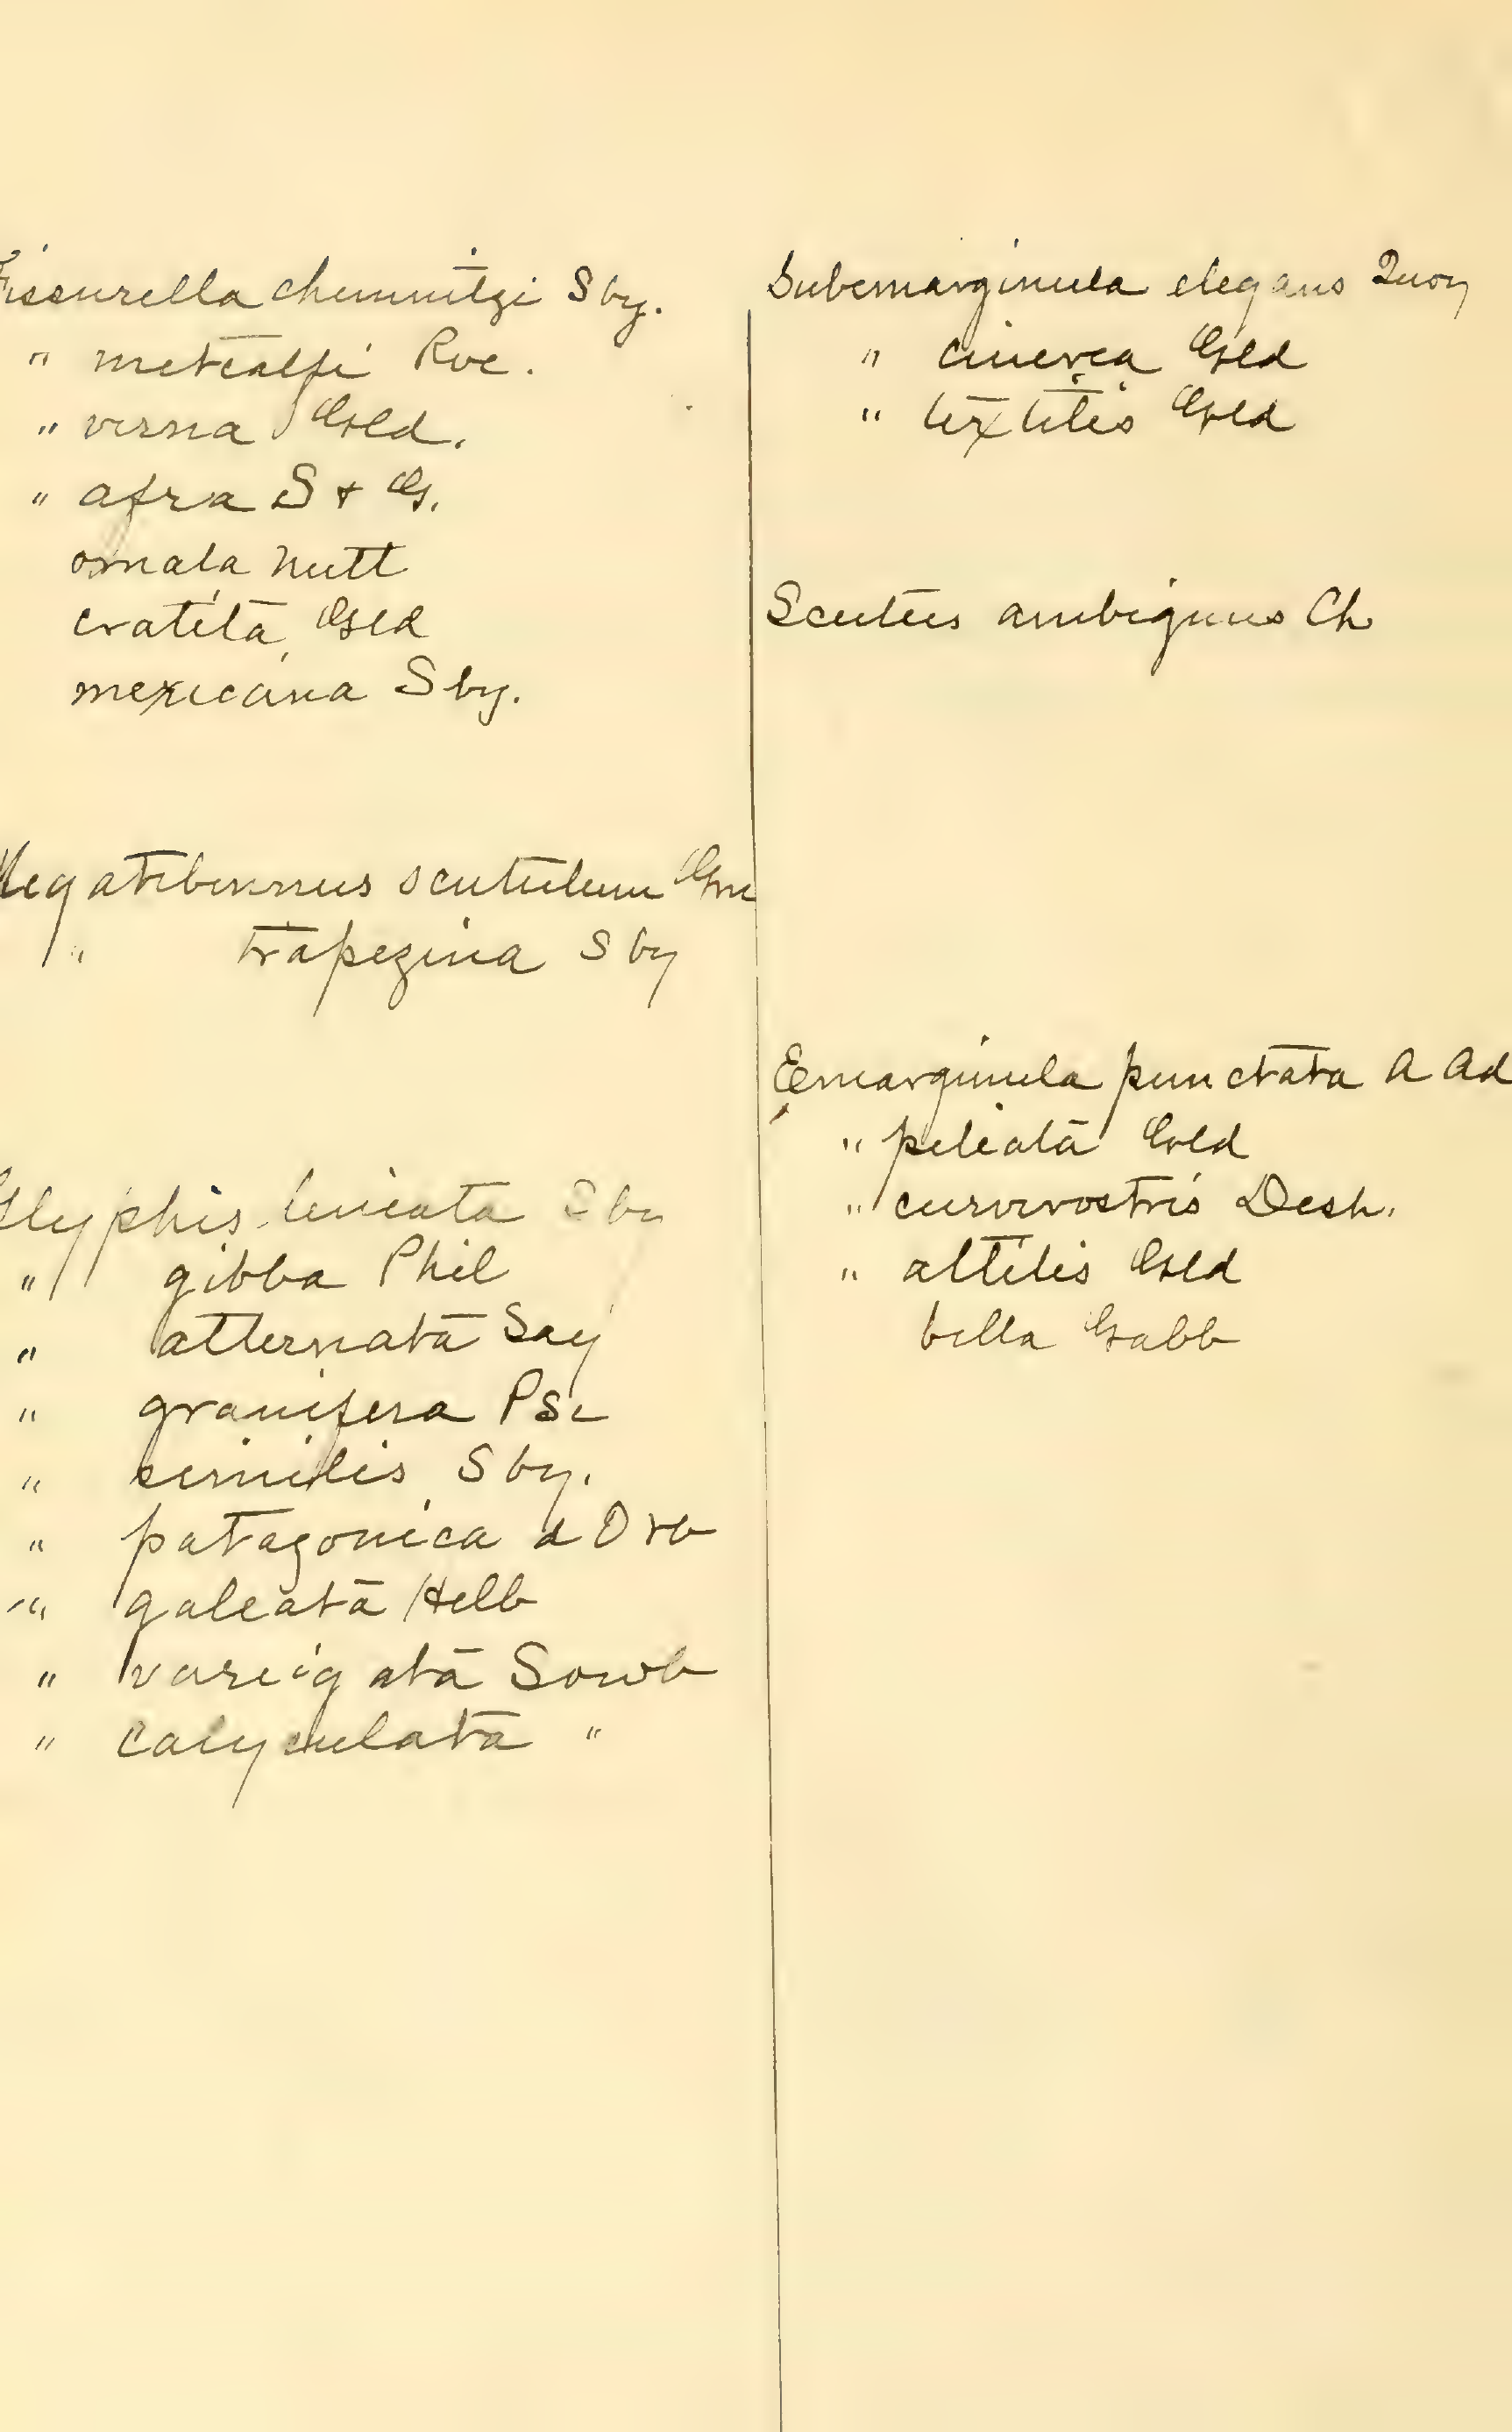 Fissurella chemnitzi Sby.
" metcalfi Rve.
" verna Gld.
" afra S + G.
ornata Nutt
cratita Gld
mexicana Sby.
Megatebennus scutulum Gm
" trapezina Sby
Glyphis lineata Sby
" gibba Phil
" alternata Say
" granifera Pse
" similis Sby.
" patagonica d Orb
" galeata Helb
" vareigata Sowb
" calyculata "
Subemarginula elegans Quoy
" cinerea Gld
" textilis Gld
Scutus ambiguus Ch
Emarginula punctata A Ad
" pileata Gld
" curvirostris Desh.
" altilis Gld
bella Gabb